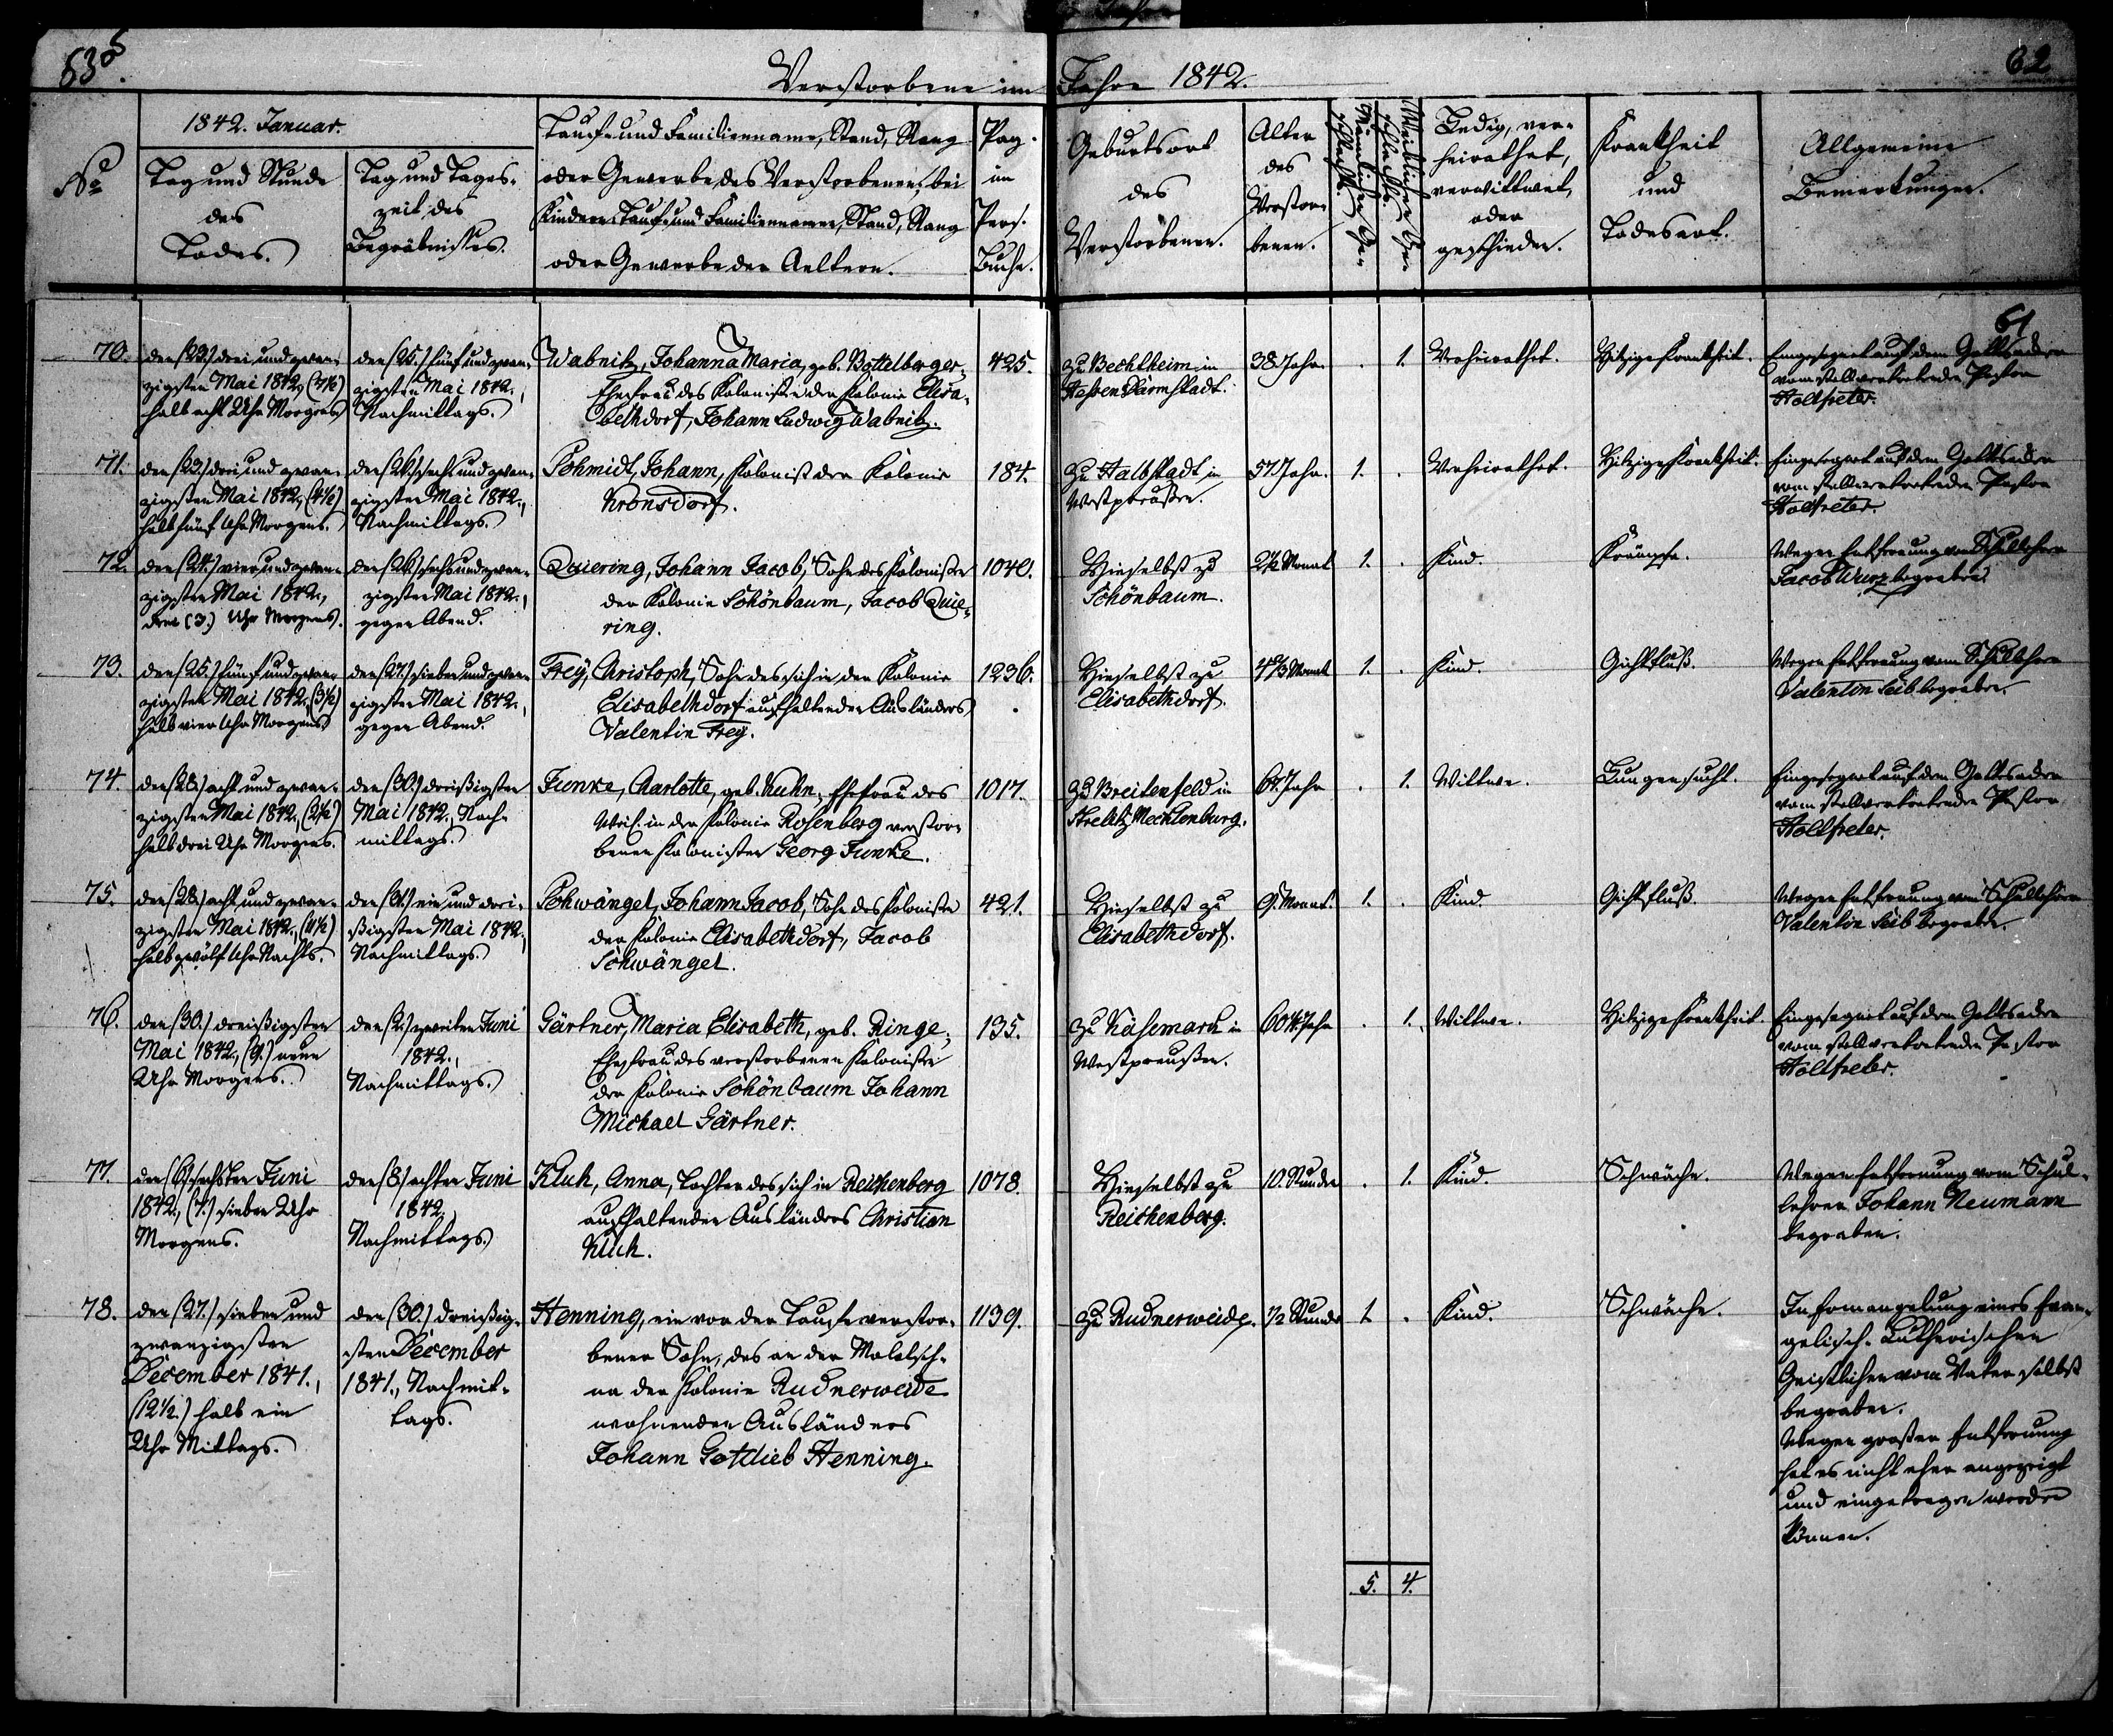 535.
62
Verstorbene im Jahre 1842.
1842. Januar.
No
Tag und Stunde
des
Todes.
Tag und Tages-
zeit des
Begräbnisses.
Tauf- und Familienname, Stand, Rang
oder Gewerbe des Verstorbenen; bei
Kindern Tauf- und Familienname, Stand, Rang
oder Gewerbe der Aeltern.
Pag.
im
Pers.
Buche.
Geburtsort
des
Verstorbenen.
Alter
des
Verstor-
benen.
Männlichen Ge-
schlechts.
Weiblichen Ge-
schlechts.
Ledig, ver-
heirathet,
verwittwet,
oder
geschieden.
Krankheit
und
Todesart.
Allgemeine
Bemerkungen.
61
70.
den (23.) drei und zwan-
zigsten Mai 1842., (7½)
halb acht Uhr Morgens.
den (25.) fünf und zwan-
zigsten Mai 1842.,
Nachmittags.
Wabnitz, Johanna Maria, geb. Bottelberger,
Ehefrau des Kolonisten der Kolonie Elisa-
bethdorf, Johann Ludwig Wabnitz.
425.
zu Bechtheim in
Hessen Darmstadt.
38 Jahr.
.
1.
Verheirathet.
Hitzige Krankheit.
Eingesegnet auf dem Gottesacker
vom stellvertretenden Pastor
Holtfreter.
71.
den (23.) drei und zwan-
zigsten Mai 1842., (4½)
halb fünf Uhr Morgens.
den (26.) sechs und zwan-
zigsten Mai 1842.,
Nachmittags.
Schmidt, Johann, Kolonist der Kolonie
Kronsdorf.
184.
zu Halbstadt in
Westpreußen.
57 Jahr.
1.
.
Verheirathet.
Hitzige Krankheit.
Eingesegnet auf dem Gottesacker
vom stellvertretenden Pastor
Holtfreter.
72.
den (24.) vier und zwan-
zigsten Mai 1842.,
drei (3.) Uhr Morgens.
den (26.) sechs und zwan-
zigsten Mai 1842.,
gegen Abend.
Quiering, Johann Jacob, Sohn des Kolonisten
der Kolonie Schönbaum, Jacob Quie-
ring.
1040.
Hieselbst zu
Schönbaum.
2½ Monat
1.
.
Kind.
Krämpfe.
Wegen Entfernung vom Schullehrer
Jacob Wurz begraben.
73.
den (25.) fünf und zwan-
zigsten Mai 1842., (3½)
halb vier Uhr Morgens.
den (27.) sieben und zwan-
zigsten Mai 1842.,
gegen Abend.
Frey, Christoph, Sohn des sich in der Kolonie
Elisabethdorf aufhaltenden Ausländers
Valentin Frey.
1236.
Hieselbst zu
Elisabethdorf.
Monat
1.
.
Kind.
Gichtfluß.
Wegen Entfernung vom Schullehrer
Valentin Leib begraben.
74.
den (28.) acht und zwan-
zigsten Mai 1842., (2½)
halb drei Uhr Morgens.
den (30.) dreißigsten
Mai 1842., Nach-
mittags.
Funke, Charlotte, geb. Kuhn, Ehefrau des
weil. in der Kolonie Rosenberg verstor-
benen Kolonisten Georg Funke.
1017.
zu Breitenfeld in
Strelitz Mecklenburg.
67. Jahr
.
1.
Wittwe.
Lungensucht.
Eingesegnet auf dem Gottesacker
vom stellvertretenden Pastor
Holtfreter.
75.
den (28.) acht und zwan-
zigsten Mai 1842., (11½)
halb zwölf Uhr Nachts.
den (31.) ein und drei-
ßigsten Mai 1842.,
Nachmittags.
Schwängel, Johann Jacob, Sohn des Kolonisten
der Kolonie Elisabethdorf, Jacob
Schwängel.
421.
Hieselbst zu
Elisabethdorf.
9. Monat.
1.
.
Kind.
Gichtfluß.
Wegen Entfernung vom Schullehrer
Valentin Leib begraben.
76.
den (30.) dreißigsten
Mai 1842., (9.) neun
Uhr Morgens.
den (2.) zweiten Juni
1842.,
Nachmittags.
Gärtner, Maria Elisabeth, geb. Ringe,
Ehefrau des verstorbenen Kolonisten
der Kolonie Schönbaum Johann
Michael Gärtner.
135.
zu Käsemark in
Westpreußen.
60¼ Jahr
.
1.
Wittwe.
Hitzige Krankheit.
Eingesegnet auf dem Gottesacker
vom stellvertretenden Pastor
Holtfreter.
77.
den (6.) sechsten Juni
1842., (7.) sieben Uhr
Morgens.
den (8.) achten Juni
1842.,
Nachmittags.
Kluh, Anna, Tochter des sich in Reichenberg
aufhaltenden Ausländers Christian
Kluh.
1078.
Hieselbst zu
Reichenberg.
10. Stunden
.
1.
Kind.
Schwäche.
Wegen Entfernung vom Schul-
lehrer Johann Neumann
begraben.
78.
den (27.) sieben und
zwanzigsten
December 1841.,
(12½.) halb ein
Uhr Mittags.
den (30.) dreißig-
sten December
1841., Nachmit-
tags.
Henning, ein vor der Taufe verstor-
bener Sohn, des an der Molotsch-
na der Kolonie Rudnerweide
wohnenden Ausländers
Johann Gottlieb Henning.
1139.
zu Rudnerweide.
½ Stunde
1.
.
Kind.
Schwäche.
In Ermangelung eines Evan-
gelisch-Lutherischen
Geistlichen vom Vater selbst
begraben.
Wegen großer Entfernung
hat es nicht eher angezeigt
und eingetragen werden
können.
5.
4.